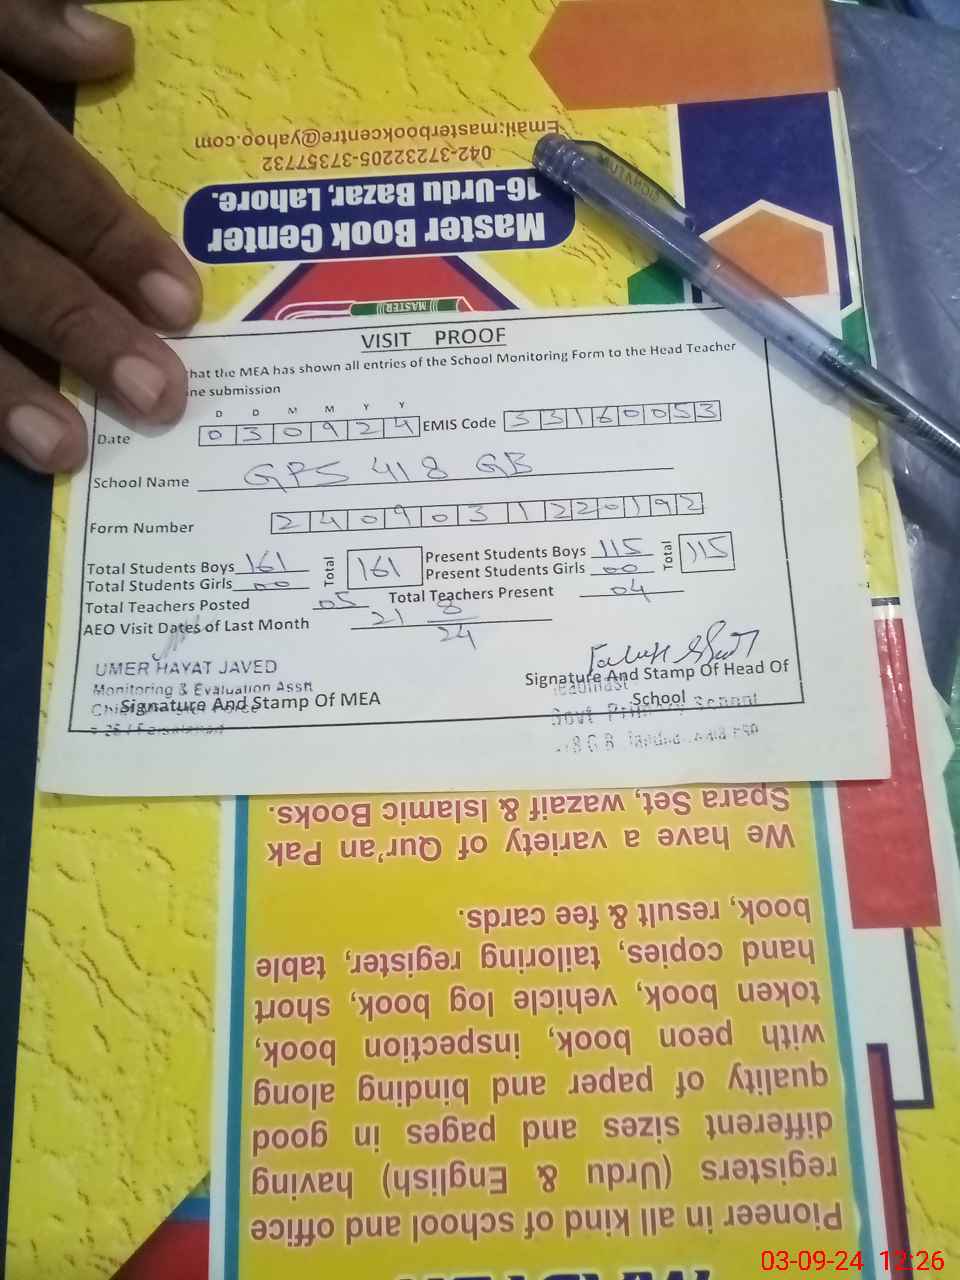 VISIT PROOF
hat the MEA has shown all entries of the School Monitoring Form to the Head Teacher
ne submission
D D M M Y Y
Date 0 3 0 9 2 4 EMIS Code 3 3 1 6 0 0 5 3
School Name GPS 418 GB
Form Number 2 4 0 9 0 3 1 2 2 0 1 9 2
Total Students Boys 161 Total 161 Present Students Boys 115 Total 115
Total Students Girls 00 Present Students Girls 00
Total Teachers Posted 05 Total Teachers Present 04
AEO Visit Dates of Last Month 21 8 24
UMER HAYAT JAVED
Monitoring & Evaluation Asstt
Signature And Stamp Of MEA
Signature And Stamp Of Head Of
School
Govt Primary School
Master Book Center
16-Urdu Bazar, Lahore.
042-37232205-37357732
Email:masterbookcentre@yahoo.com
MASTER
Pioneer in all kind of school and office
registers (Urdu & English) having
different sizes and pages in good
quality of paper and binding along
with peon book, inspection book,
token book, vehicle log book, short
hand copies, tailoring register, table
book, result & fee cards.
We have a variety of Qur'an Pak
Spara Set, wazaif & Islamic Books.
03-09-24 12:26